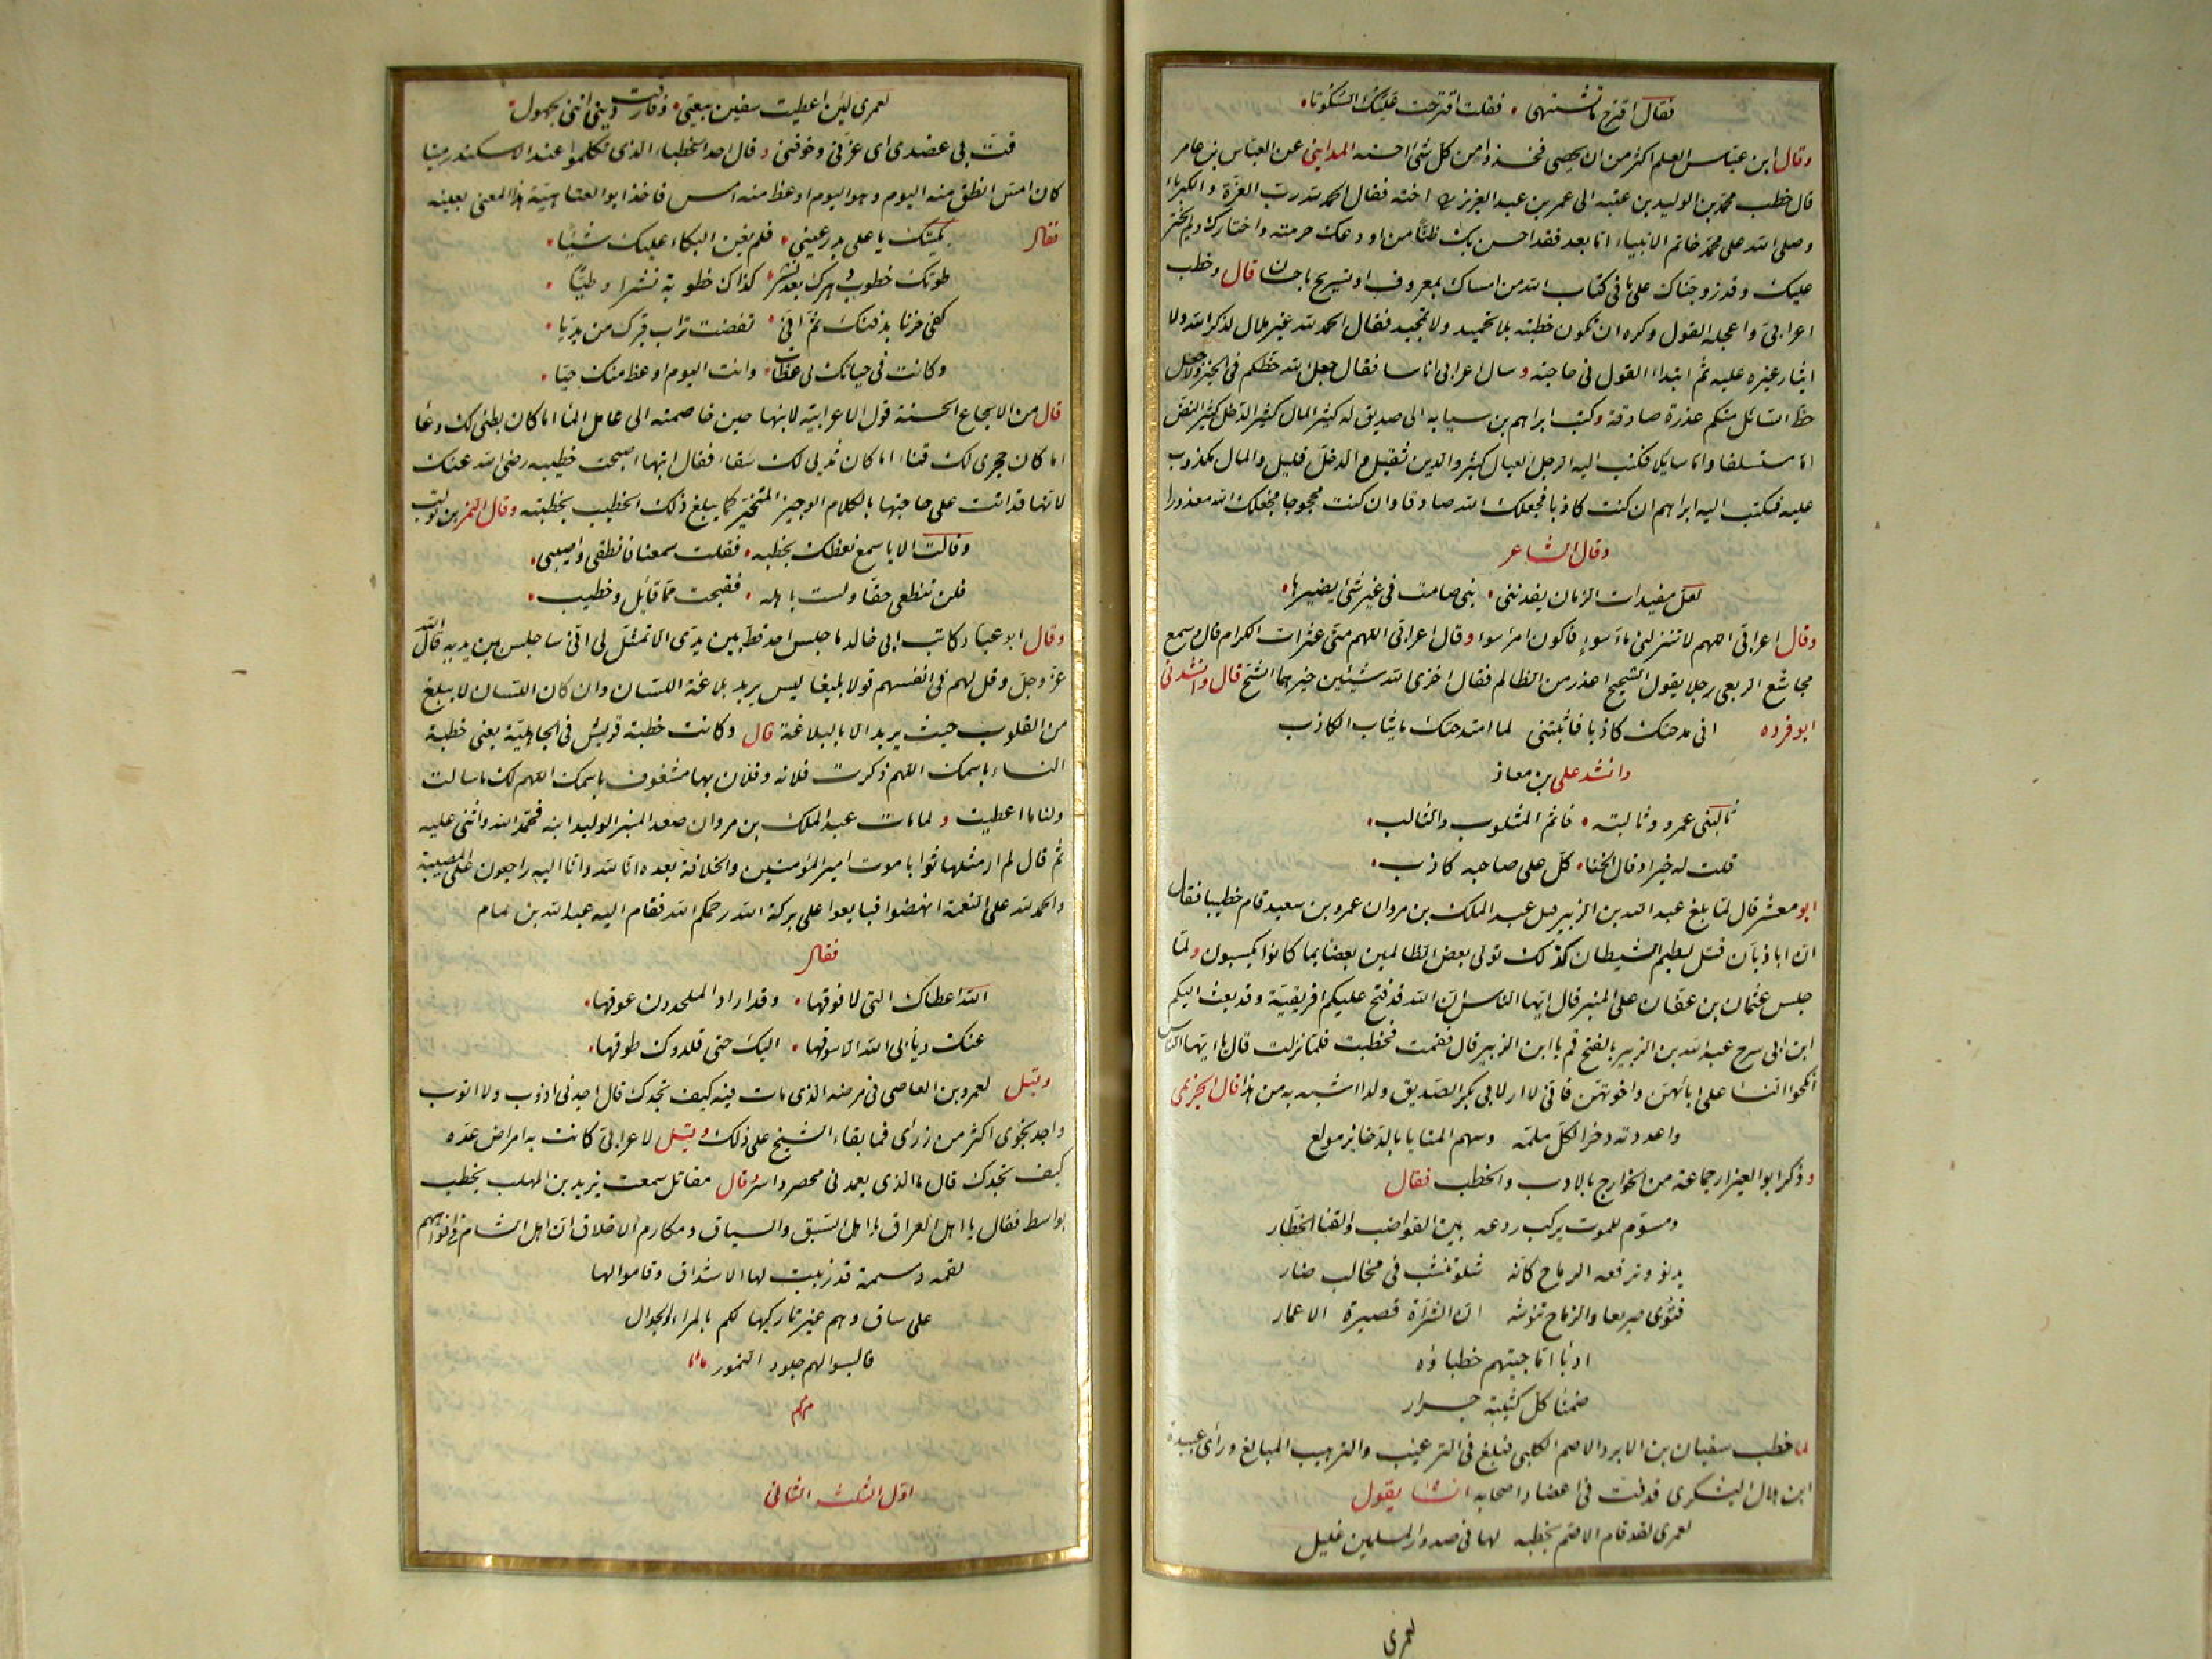 فقال اقترح ما تشتهى فقلت اقترحت عليك السكوتا
وقال ابن عباس العلم اكثر من ان يحصى فخذوا من كل شئ احسنه المداينى عن العباس بن عامر
قال خطب محمد بن الوليد بن عتبه الى عمر بن عبد العزيز اخته فقال الحمد لله رب العزة والكبرياء
وصلى الله على محمد خاتم الانبياء اما بعد فقد احسن بك ظنا من اودعك حرمته واختارك ولم يختر
عليك وقد زوجناك على ما فى كتاب الله من امساك بمعروف او تسريح باحسان قال وخطب
اعرابى واعجله القول وكره ان تكون خطبته بلا تحميد ولا تمجيد فقال الحمد لله غير ملال لذكر الله ولا
ايثار غيره عليه ثم ابتدا القول فى حاجته وسال اعرابى اناسا فقال جعل الله حظكم فى الخير ولا جعل
حظ السائل منكم عذرة صادقة وكتب ابراهيم بن سيابه الى صديق له كثير المال كثير الدخل كثير النض
اما مستسلفا واما سايلا فكتب اليه الرجل العيال كثير والدين ثقيل والدخل قليل والمال مكذوب
عليه فكتب اليه ابراهيم ان كنت كاذبا فجعلك الله صادقا وان كنت محجوجا فجعلك الله معذورا
وقال الشاعر
لعل مفيدات الزمان يفدننى بنى صامت فى غير شئ يضيرها
وقال اعرابى اللهم لا تنزلنى ماء سوء فاكون امرء سوا وقال اعرابى اللهم قنى عثرات الكرام قال وسمع
مجاشع الربعى رجلا يقول الشحيح اعذر من الظالم فقال اخزى الله شيئين خيرهما الشح قال وانشدنى
ابو فرده انى مدحتك كاذبا فاثبتنى لما امتدحتك ما يثاب الكاذب
وانشد على بن معاذ
ثالبنى عمرو وثالبته فاثم المثلوب والثالب
قلت له خيرا وقال الخنا كل على صاحبه كاذب
ابو معشر قال لما بلغ عبد الله بن الزبير قتل عبد الملك بن مروان عمرو بن سعيد قام خطيبا فقال
ان ابا ذبان قتل لطيم الشيطان كذلك نولى بعض الظالمين بعضا بما كانوا يكسبون ولما
جلس عثمان بن عفان على المنبر قال ايها الناس ان الله قد فتح عليكم افريقية وقد بعث اليكم
ابن ابى سرح عبد الله بن الزبير بالفتح قم يا ابن الزبير قال فقمت فخطبت فلما نزلت قال يا ايها الناس
انكحوا النسا على ابائهن واخوتهن فانى لم ار لابى بكر الصديق ولدا اشبه به من هذا قال الخريمى
واعددته ذخرا لكل ملمه وسهم المنايا بالذخاير مولع
وذكر ابو العيزار جماعة من الخوارج بالادب والخطب فقال
ومسوم للموت يركب ردعه بين القواضب والقنا الخطار
يدنو وترفعه الرماح كانه شلو تنشب فى مخالب ضار
فثوى صريعا والرماح تنوشه ان الشراة قصيرة الاعمار
ادبا اما جيتهم خطباؤه
ضمنا كل كتيبة جرار
لما خطب سفيان بن الابرد الاصم الكلبى فبلغ فى الترغيب والترهيب المبالغ وراى عبيدة
ابن هلال اليشكرى قد فت فى اعضاد اصحابه انشا يقول
لعمرى لقد قام الاصم بخطبه لها فى صدور المسلمين غليل
لعمرى
لعمرى لئن اعطيت سفين بيعتى وفارقت دينى اننى بجهول
فت فى عضدى اى عزنى وخوفنى وقال احد الخطباء الذى تكلموا عند الاسكندر ميتا
كان امس انطق منه اليوم وهو اليوم اوعظ منه امس فاخذ ابو العتاهية هذا المعنى بعينه
فقال بكيتك يا على بدر عينى فلم يغن البكاء عليك شيئا
طوتك خطوب دهرك بعد نشر كذاك خطوبه نشرا وطيا
كفى حزنا بدفنك ثم انى نفضت تراب قبرك من يديا
وكانت فى حياتك لى عظات وانت اليوم اوعظ منك حيا
قال من الاسجاع الحسنة قول الاعرابية لابنها حين خاصمته الى عامل الماء اما كان بطنى لك وعاء
اما كان حجرى لك فناء اما كان ثديى لك سقاء فقال ابنها اصبحت خطيبه رضى الله عنك
لانها قد اتت على حاجتها بالكلام الوجيز المتخير كما يبلغ ذلك الخطيب بخطبته وقال النمر بن تولب
وقالت الا يا اسمع نعظك بخطبه فقلت سمعنا فانطقى واصيبى
فلن تنطقى حقا ولست باهله فقبحت مما قايل وخطيب
وقال ابو عباد كاتب ابى خالد ما جلس احد قط بين يدى الا تمثل لى انى ساجلس بين يديه قال الله
عز وجل وقل لهم فى انفسهم قولا بليغا ليس يريد بلاغة اللسان وان كان اللسان لا يبلغ
من القلوب حيث يريد الا بالبلاغة قال وكانت خطبة قريش فى الجاهلية يعنى خطبة
النساء باسمك اللهم ذكرت فلانه وفلان بها مشغوف باسمك اللهم لك ما سالت
ولنا ما اعطيت ولما مات عبد الملك بن مروان صعد المنبر الوليد ابنه فحمد الله واثنى عليه
ثم قال لم ار مثلها ثوابا موت امير المؤمنين والخلافة بعده انا لله وانا اليه راجعون على المصيبة
والحمد لله على النعمة انهضوا فبايعوا على بركة الله رحمكم الله فقام اليه عبد الله بن همام
فقال
الله اعطاك التى لا فوقها وقد اراد الملحدون عوقها
عنك ويأبى الله الا سوقها اليك حتى قلدوك طوقها
وقيل لعمرو بن العاصى فى مرضه الذى مات فيه كيف تجدك قال اجدنى اذوب ولا اثوب
واجد نجوى اكثر من رزئى فما بقاء الشيخ على ذلك وقيل لاعرابى كانت به امراض عده
كيف تجدك قال ما الذى يعمدنى فحصر واسر وقال مقاتل سمعت يزيد بن المهلب يخطب
بواسط فقال يا اهل العراق يا اهل السبق والسباق ومكارم الاخلاق ان اهل الشام فى افواههم
لقمه دسمة قد زببت لها الاشداق وقاموا لها
على ساق وهم غير تاركيها لكم بالمراء والجدال
فالبسوا لهم جلود النمور
اول الثلث الثانى